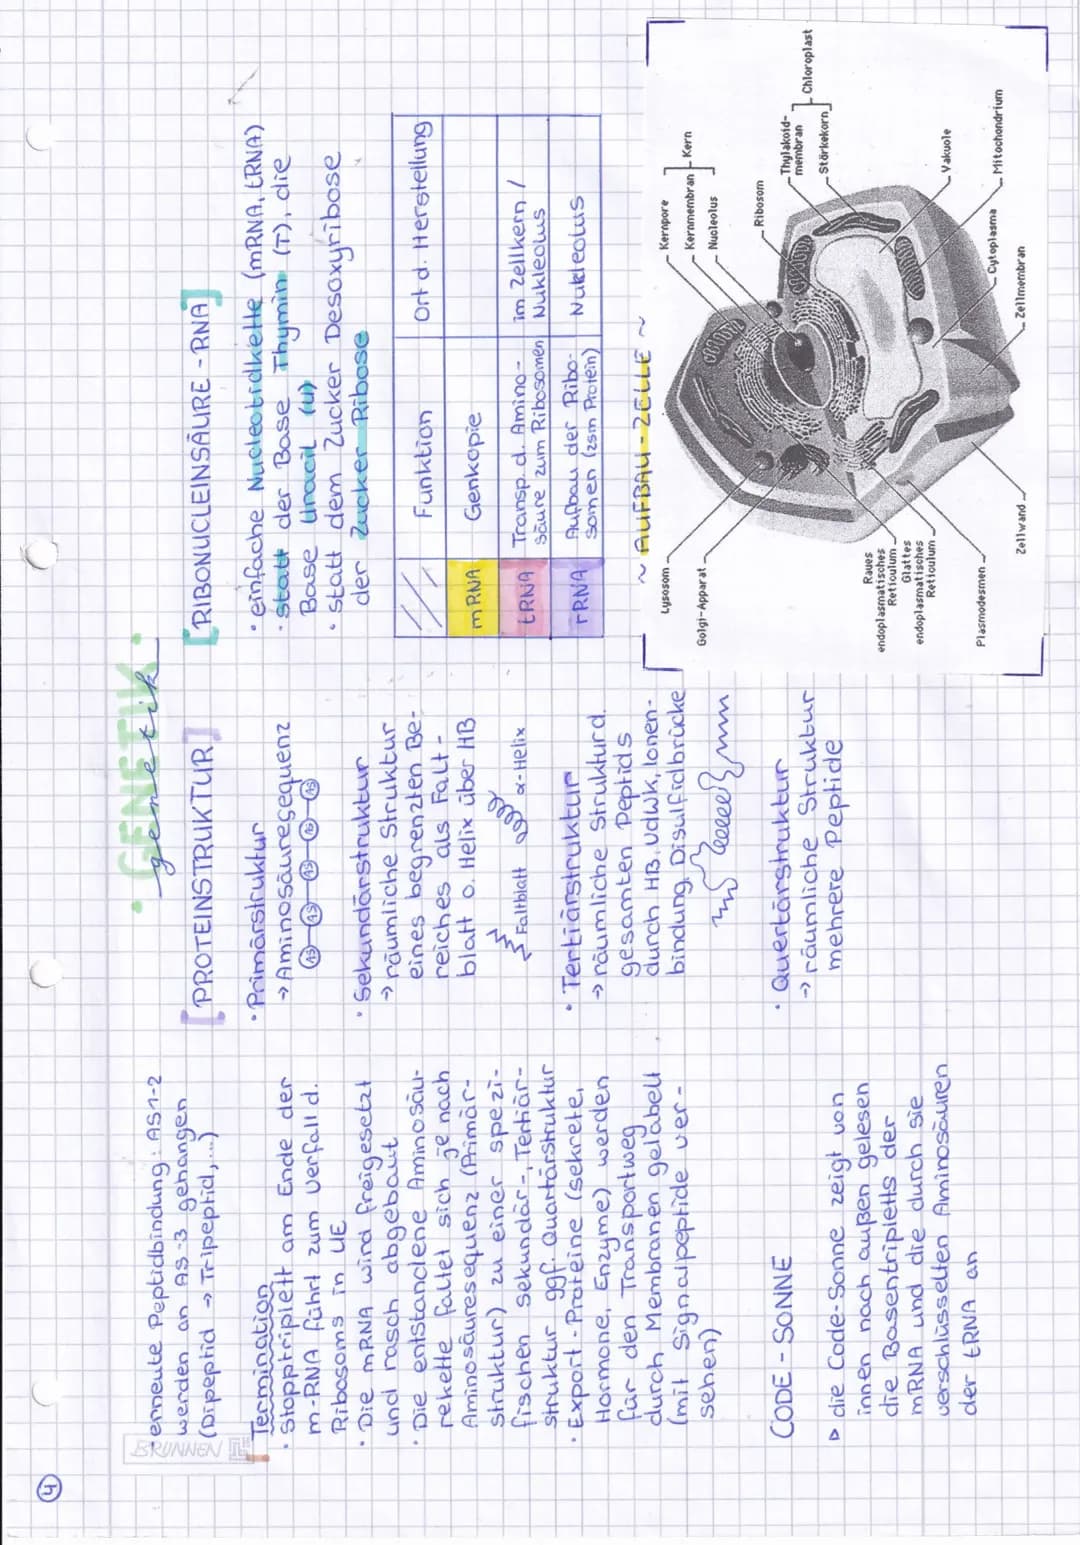 4
GENETIK
genetik
BRUNNEN
erneute Peptidbindung: AS1-2
werden an AS-3 gehangen
(Dipeptid → Tripeptid,...)
Termination
• Stopptriplett am Ende der
m-RNA führt zum Verfall d.
Ribosoms in UE
• Die mRNA wird freigesetzt
und rasch abgebaut
• Die entstandene Aminosäu-
rekette faltet sich je nach
Aminosäuresequenz (Primär-
struktur) zu einer spezi-
fischen Sekundär-, Tertiär-
struktur ggf. Quartärstruktur
• Export-Proteine (sekrete,
Hormone, Enzyme) werden
für den Transportweg
durch Membranen gelabelt
(mit Signalpeptide ver-
sehen)
CODE-SONNE
▹ die Code-Sonne zeigt von
innen nach außen gelesen
die Basentripletts der
mRNA und die durch sie
verschlüsselten Aminosäuren
der tRNA an
[PROTEINSTRUKTUR]
• Primärstruktur
→ Aminosäuresequenz
AS-AS-AS-AS-AS
• Sekundärstruktur
→ räumliche Struktur
eines begrenzten Be-
reiches als Falt-
blatt o. Helix über HB
Faltblatt α-Helix
• Tertiärstruktur
→ räumliche Struktur d.
gesamten Peptids
durch HB, VdWK, Ionen-
bindung, Disulfidbrücke
• Quertärstruktur
→ räumliche Struktur
mehrere Peptide
[RIBONUCLEINSÄURE - RNA]
• einfache Nucleotidkette (mRNA, tRNA)
• statt der Base Thymin (T), die
Base Uracil (U)
• statt dem Zucker Desoxyribose
der Zucker Ribose
// Funktion Ort d. Herstellung
mRNA Genkopie
tRNA Transp. d. Amino-
säure zum Ribosomen im Zellkern /
Nukleolus
rRNA Aufbau der Ribo-
somen (zsm Protein) Nukleolus
~ AUFBAU-ZELLE ~
Lysosom
Golgi-Apparat
Raues
endoplasmatisches
Retioulum
Glattes
endoplasmatisches
Retioulum
Plasmodesmen
Zellwand
Kernpore
Kernmembran
Kern
Nucleolus
Ribosom
Thylakoid-
membran
Stärkekorn
Chloroplast
Vakuole
Mitochondrium
Cytoplasma
Zellmembran